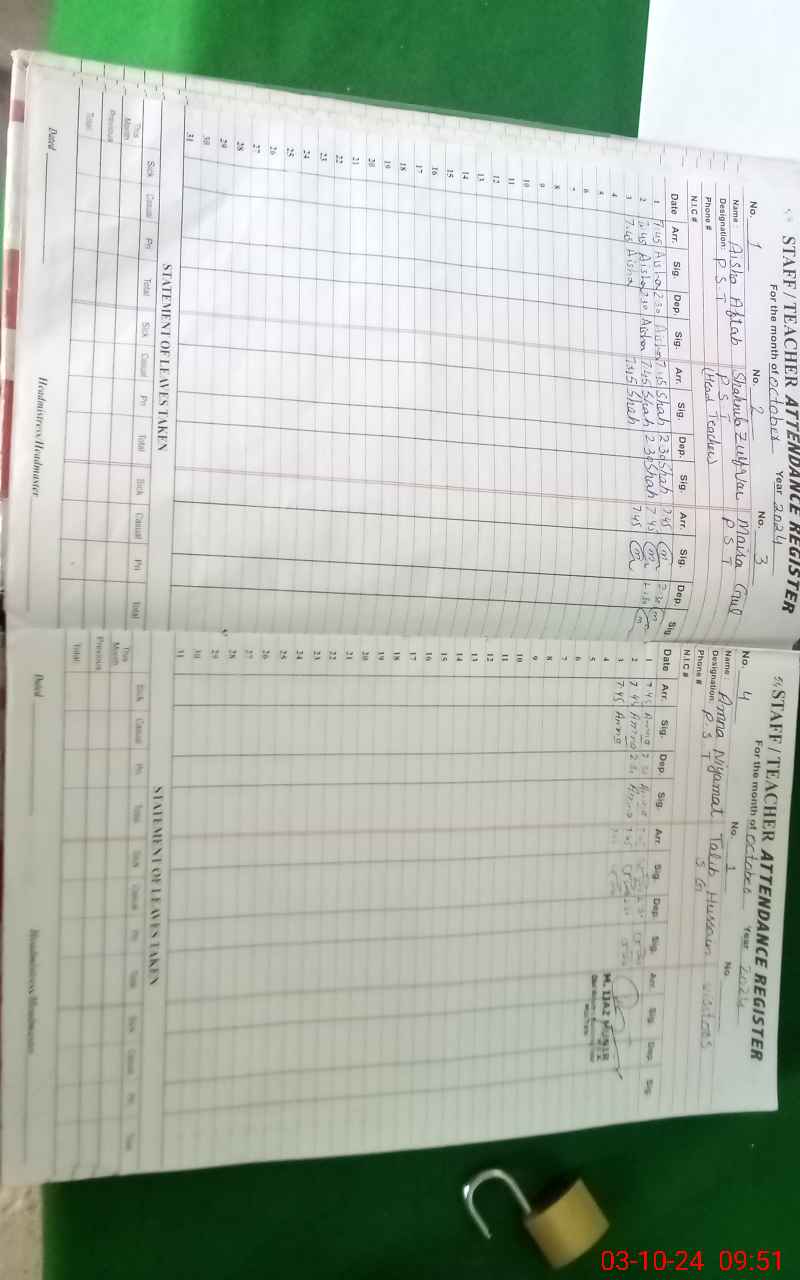 STAFF / TEACHER ATTENDANCE REGISTER
For the month of October Year 2024
No. 1 No. 2 No. 3
Name: Aisha Aftab Shahnila Zulfiqar Maira Gul
Designation: P.S.T P.S.T P.S.T
Phone # (Head Teacher)
N.I.C #
Date Arr. Sig. Dep. Sig. Arr. Sig. Dep. Sig. Arr. Sig. Dep. Sig.
1 7.45 Aisha 2.30 Aisha 7.45 Shah 2 30 Shah 7.45 2.30
2 7.45 Aisha 2.30 Aisha 7.45 Shah 2 30 Shah 7.45 2.30
3 7.45 Aisha 7.45 Shah 7.45
4
5
6
7
8
9
10
11
12
13
14
15
16
17
18
19
20
21
22
23
24
25
26
27
28
29
30
31
STATEMENT OF LEAVES TAKEN
Sick Casual Pri Total Sick Casual Pri Total Sick Casual Pri Total
This Month
Previous
Total
Dated Headmistress/Headmaster
STAFF / TEACHER ATTENDANCE REGISTER
For the month of October Year 2024
No. 4 No. 1 No
Name: Amna Niyamat Talib Hussain visitors
Designation: P.S.T S.G
Phone #
N.I.C #
Date Arr. Sig. Dep. Sig. Arr. Sig. Dep. Sig. Arr. Sig. Dep. Sig.
1 7.45 Amna Amna
2 7.45 Amna Amna
3 7.45 Amna
4
5
6
7
8
9
10
11
12
13
14
15
16
17
18
19
20
21
22
23
24
25
26
27
28
29
30
31
M. IJAZ MUNIR
STATEMENT OF LEAVES TAKEN
Sick Casual Pri Total Sick Casual Pri Total Sick Casual Pri Total
This Month
Previous
Total
Dated Headmistress/Headmaster
03-10-24 09:51